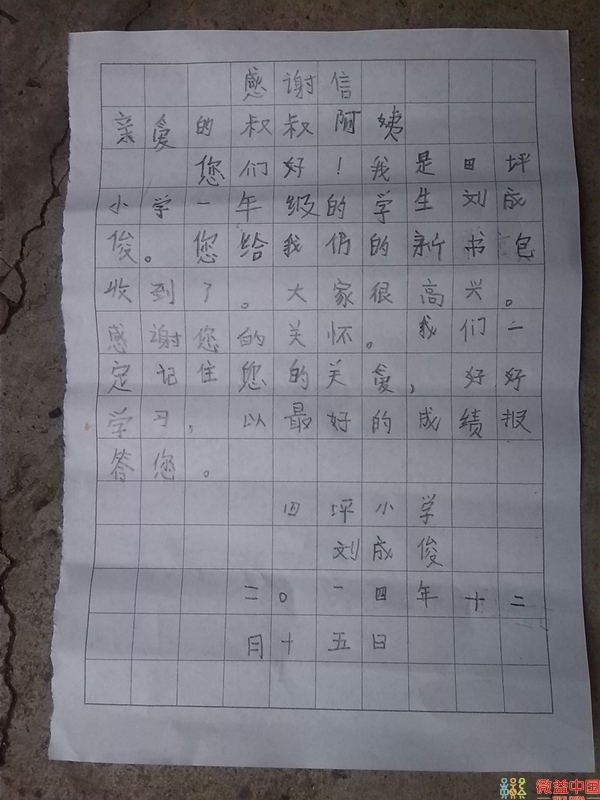 感谢信
亲爱的叔叔阿姨
您们好！我是田坪
小学一年级的学生刘成
俊。您给我仍的新书包
收到了。大家很高兴。
感谢您的关怀。我们一
定记住您的关爱，好好
学习，以最好的成绩报
答您。
四坪小学
刘成俊
二〇一四年十二
月十五日
微益中国